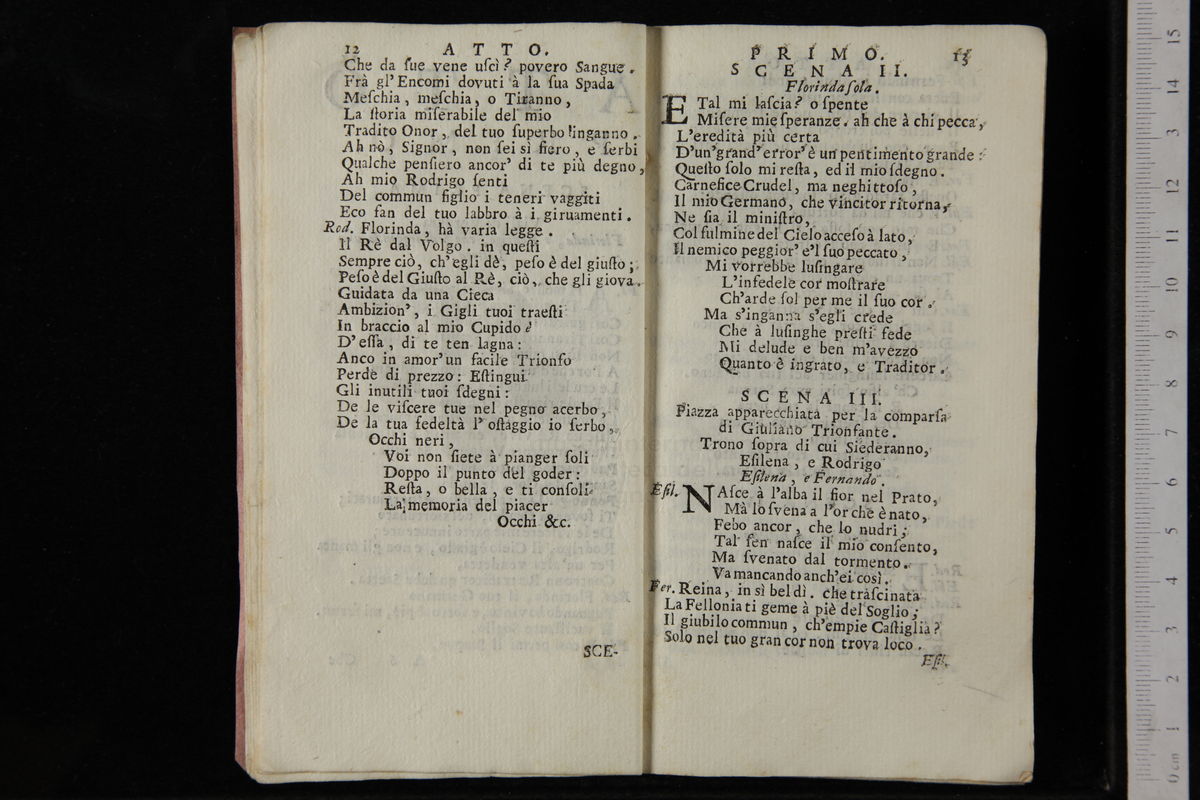 12 ATTO.
Che da ſue vene uſcì? povero Sangue.
Frà gl'Encomi dovuti à la ſua Spada
Meſchia, meſchia, o Tiranno,
La ſtoria miſerabile del mio
Tradito Onor, del tuo ſuperbo inganno.
Ah nò, Signor, non ſei sì fiero, e ſerbi
Qualche penſiero ancor' di te più degno,
Ah mio Rodrigo ſenti
Del commun figlio i teneri vaggiti
Eco fan del tuo labbro à i giruamenti.
Rod. Florinda, hà varia legge.
Il Rè dal Volgo. in queſti
Sempre ciò, ch'egli dè, peſo è del giuſto;
Peſo è del Giuſto al Rè, ciò, che gli giova.
Guidata da una Cieca
Ambizion', i Gigli tuoi traeſti
In braccio al mio Cupido è
D'eſſa, di te ten lagna:
Anco in amor' un facile Trionfo
Perde di prezzo: Eſtingui
Gli inutili tuoi ſdegni:
De le viſcere tue nel pegno acerbo,
De la tua fedeltà l'oſtaggio io ſerbo,
Occhi neri,
Voi non ſiete à pianger ſoli
Doppo il punto del goder:
Reſta, o bella, e ti conſoli
La memoria del piacer
Occhi &c.
SCE-
PRIMO. 13
SCENA II.
Florinda ſola.
E Tal mi laſcia? o ſpente
Miſere mie ſperanze. ah che à chi pecca,
L'eredità più certa
D'un' grand' error' è un pentimento grande:
Queſto ſolo mi reſta, ed il mio ſdegno.
Carnefice Crudel, ma neghittoſo,
Il mio Germano, che vincitor ritorna,
Ne ſia il miniſtro,
Col fulmine del Cielo acceſo à lato,
Il nemico peggior' e'l ſuo peccato,
Mi vorrebbe luſingare
L'infedele cor moſtrare
Ch'arde ſol per me il ſuo cor.
Ma s'inganna s'egli crede
Che à luſinghe preſti fede
Mi delude e ben m'avezzo
Quanto è ingrato, e Traditor.
SCENA III.
Piazza apparecchiata per la comparſa
di Giuliano Trionfante.
Trono ſopra di cui Siederanno,
Eſilena, e Rodrigo
Eſilena, e Fernando.
Eſil. NAſce à l'alba il fior nel Prato,
Mà lo ſvena a l'or chè è nato,
Febo ancor, che lo nudrì;
Tal ſen naſce il mio conſento,
Ma ſvenato dal tormento.
Va mancando anch'ei così.
Fer. Reina, in sì bel dì. che traſcinata
La Fellonia ti geme à piè del Soglio;
Il giubilo commun, ch'empie Caſtiglia?
Solo nel tuo gran cor non trova loco.
Eſil.